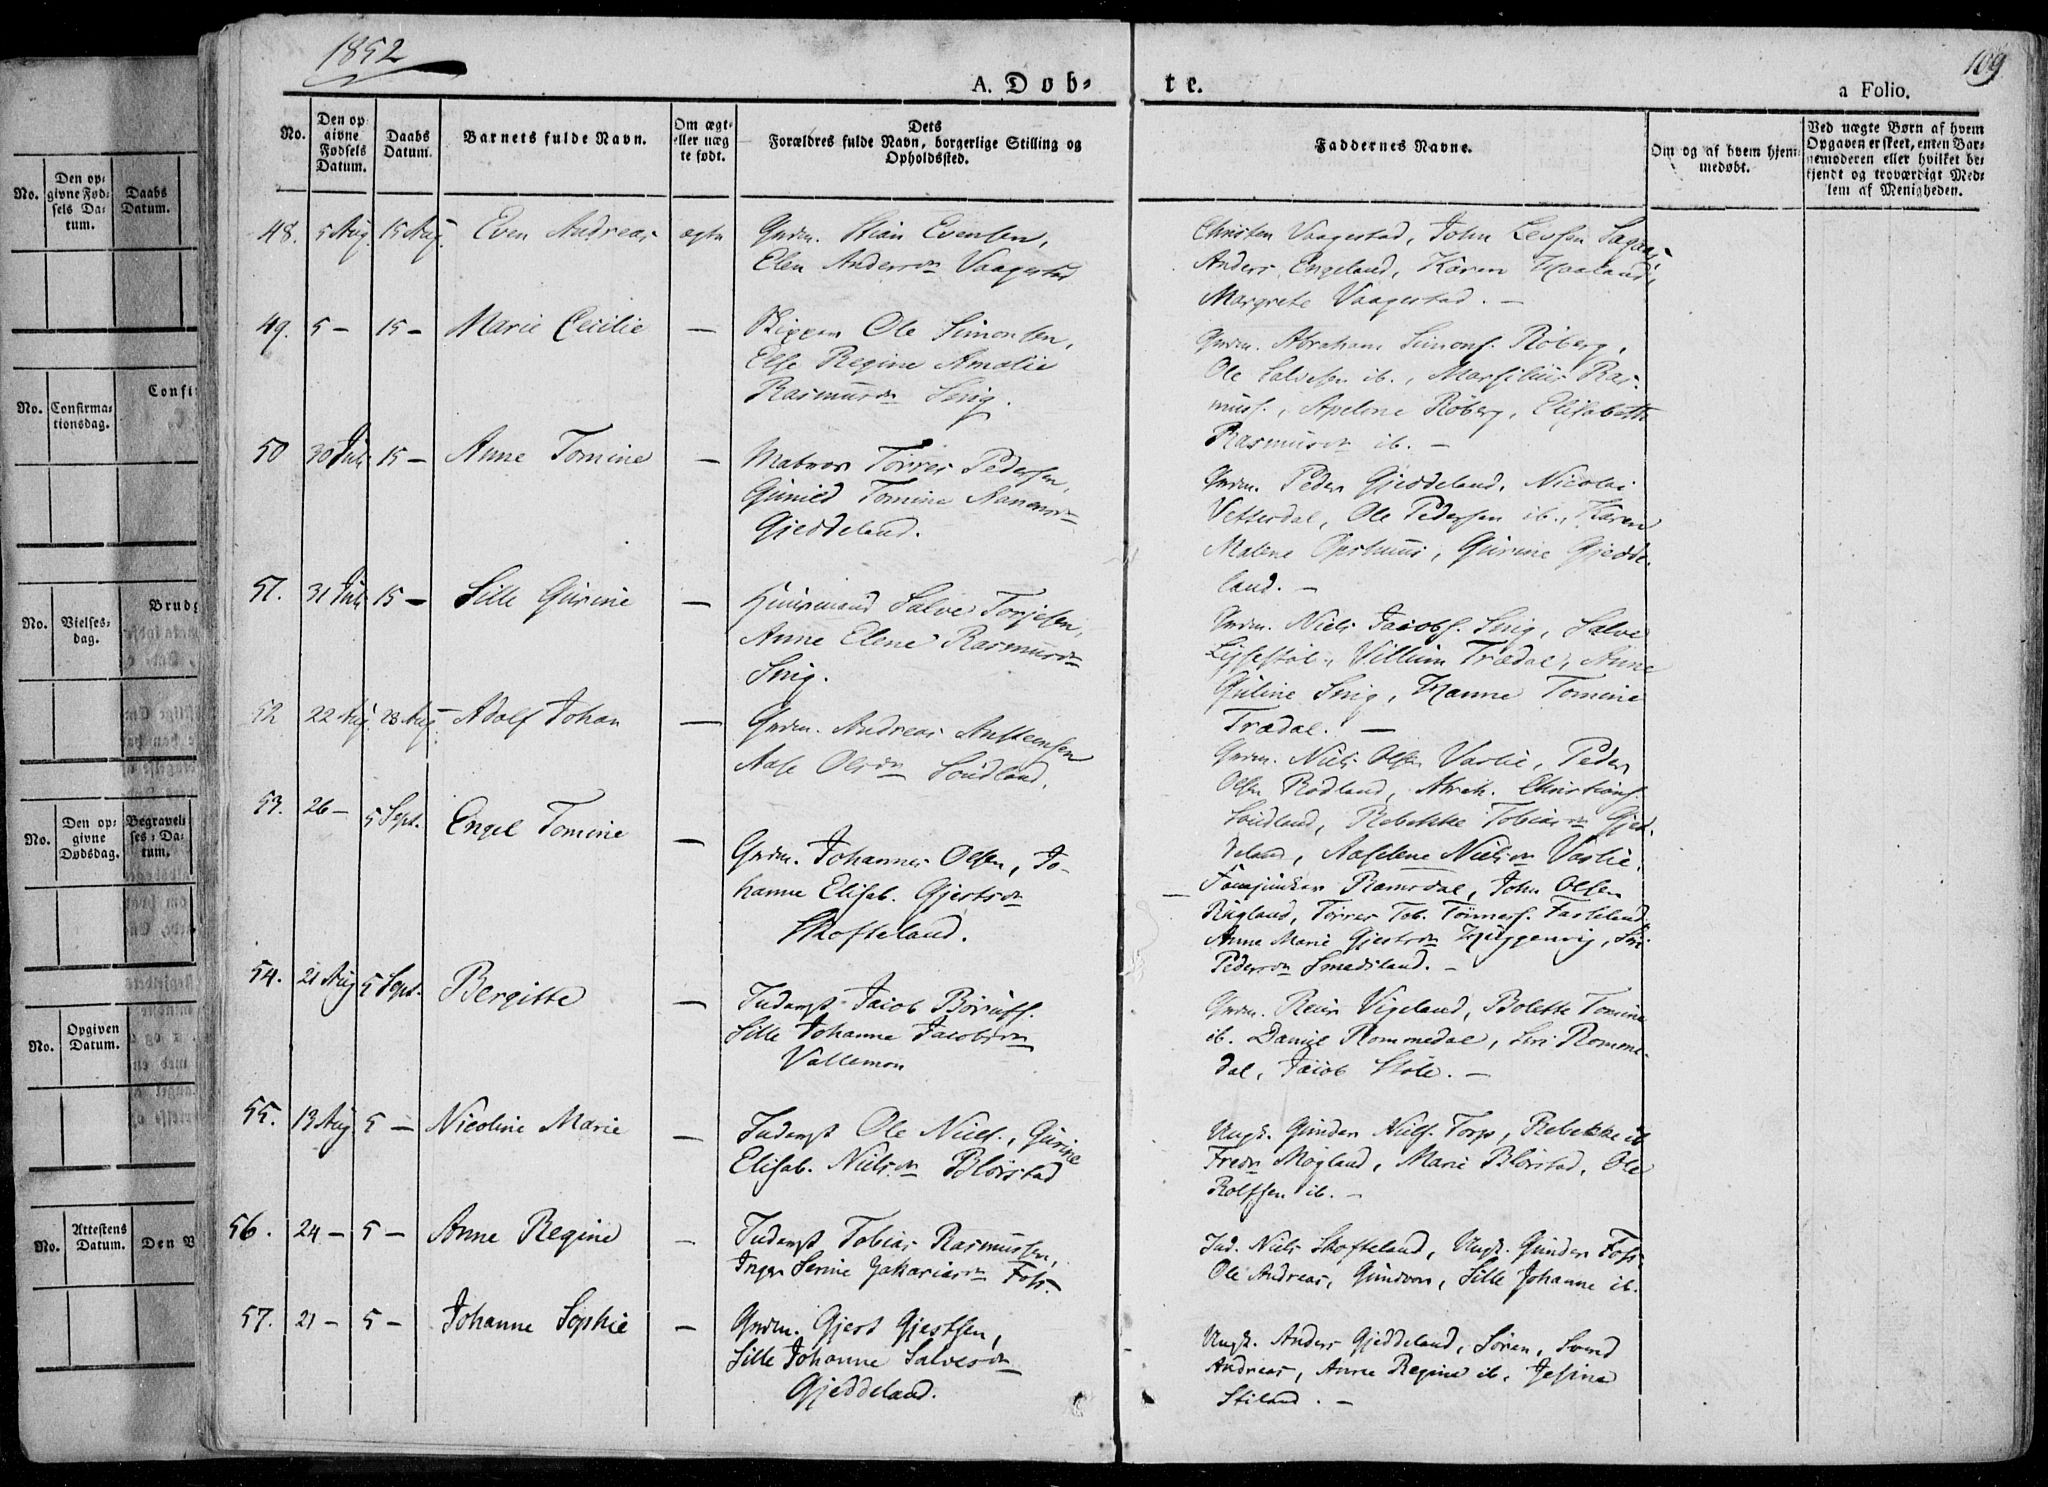 1852
109
A. Døb-
te.
a Folio.
No.
Den op
givne
Fødsels
Datum.
Daabs
Datum.
Barnets fulde Navn.
Om ægt-
eller uæg
te født.
Dets
Forældres fulde Navn, borgerlige Stilling og
Opholdssted.
Faddernes Navne.
Om og af hvem hjem-
medøbt.
Ved uægte Børn af hvem
Opgaven er skeet, enten Bar-
nemoderen eller hvilket be-
kjendt og troværdigt Med-
lem af Menigheden.
48. 5 Aug. 15 Aug. Even Andreas ægte
Grdm. Stian Evensen,
Elen Andersdn Vaagestad
Christen Vaagestad, John
Anders Engeland, Karen Haaland,
Margrete Vaagestad. –
49. 5 – 15 – Marie Cecilie –
Ole Simonsen,
Else Regine Amalie
Rasmusdn Svig.
Grdm. Abraham Simons. Røberg,
Ole Salvesen ib., Marsilius Ras-
muss., Apelone Røberg, Elisabeth
Rasmusdn ib. –
50 30 Juli 15 – Anne Tomine –
Matros Torres Pedersen,
Gunild Tomine Aanensdn
Gjeddeland.
Grdm. Peder Gjeddeland, Nicolai
Vetterdal, Ole Pedersen ib., Karen
Malene Opstuus, Gurine Gjedde-
land. –
51. 31 Juli 15 – Sille Gurine –
Huusmand Salve Torjesen,
Anne Elene Rasmusdn
Svig.
Grdm. Niels Jacobs. Svig, Salve
Lyssestøl, Villum Trædal, Anne
Guline Svig, Hanne Tomine
Trædal. –
52 22 Aug. 23 Aug. Adolf Johan –
Grdm. Andreas Austensen
Aase Olsdn Sudland.
Grdm. Niels Olsen Vaslie, Peder
Olsen Rødland, Abrah. Christians.
Sudland, Rebekke Tobiasdn Gjed-
deland, Aaselene Nielsdn Vaslie.
53. 26 – 5 Sept. Engel Tomine –
Grdm. Johannes Olsen, Jo-
hanne Elisab. Gjertsdn
Skofteland.
– Ramsdal, John Olsen
Rugland, Torres Tob. Tønness. Fasseland
Anna Marie Gjertsdn Huggenvig, Siri
Pedersdn Smedsland. –
54. 21 Aug 5 Sept. Bergitte –
Inderst Jacob Børuss.
Sille Johanne Jacobsdn
Vallemon
Grdm. Reier Vigeland, Bolette Tomine
ib. Daniel Rommedal, Siri Romme-
dal, Jacob Støle. –
55. 13 Aug. 5 – Nicoline Marie –
Inderst Ole Niels., Gurine
Elisab. Nielsdn Blørstad
Ungk. Gunder Niels. Torp, Rebekke ib
Fredn Møgland, Marie Blørstad, Ole
Rolfsen ib. –
56. 24 – 5 – Anne Regine –
Inderst Tobias Rasmussen,
Inger Serine Zakariasdn Foss.
Ind. Niels Skofteland, Ungk. Gunder Foss
Ole Andreas, Gundvor, Sille Johanne ib.
57. 21 – 5 – Johanne Sophie –
Grdm. Gjert Gjertsen,
Sille Johanne Salvesdn
Gjeddeland.
Ungk. Anders Gjeddeland, Søren, Svend
Andreas, Anne Regine ib, Jesine
Stiland. –
No.
Den op-
givne Fød-
sels Da-
tum.
Daabs
Datum.
No.
Confirma-
tionsdag.
Confi
No.
Vielses-
dag.
Brudg
No.
Den op-
givne
Dødsdag.
Begravel-
ses-Da-
tum.
No.
Opgiven
Datum.
No.
Attestens
Datum.
Den